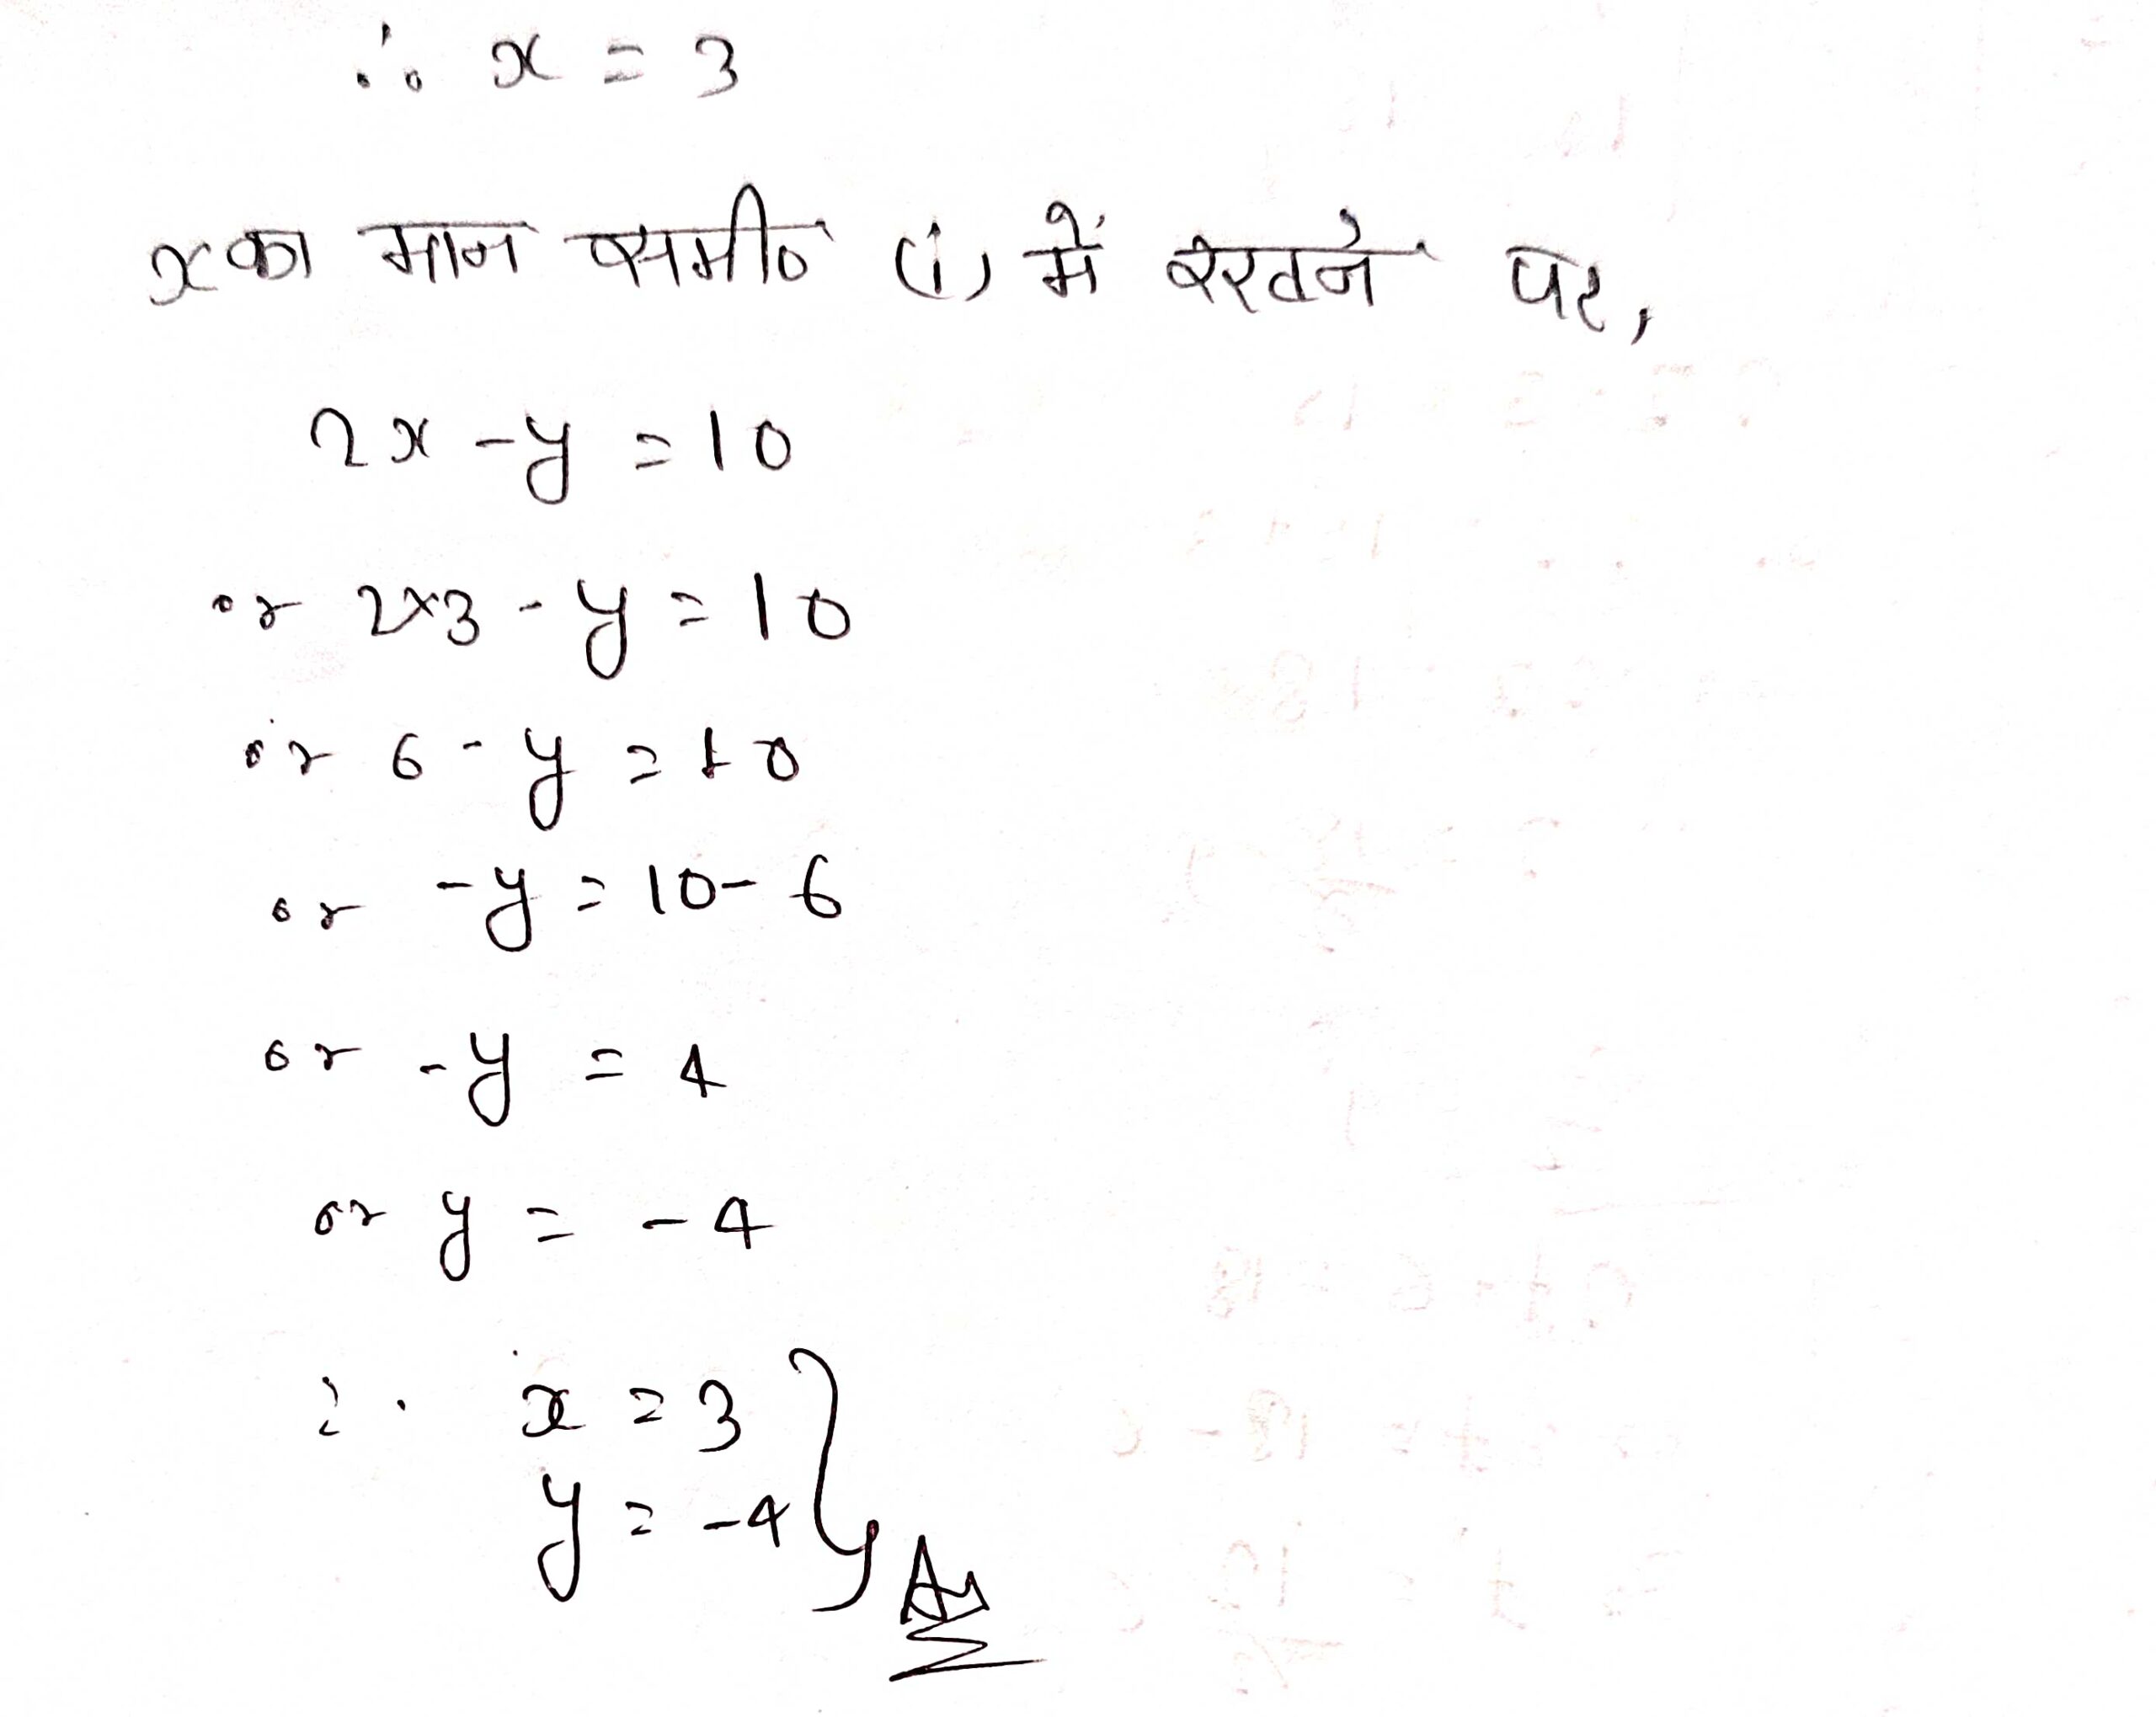 ∴ x = 3
x का मान समी० (i) में रखने पर,
2x - y = 10
or 2×3 - y = 10
or 6 - y = 10
or -y = 10 - 6
or -y = 4
or y = -4
∴ x = 3
y = -4 } Ans